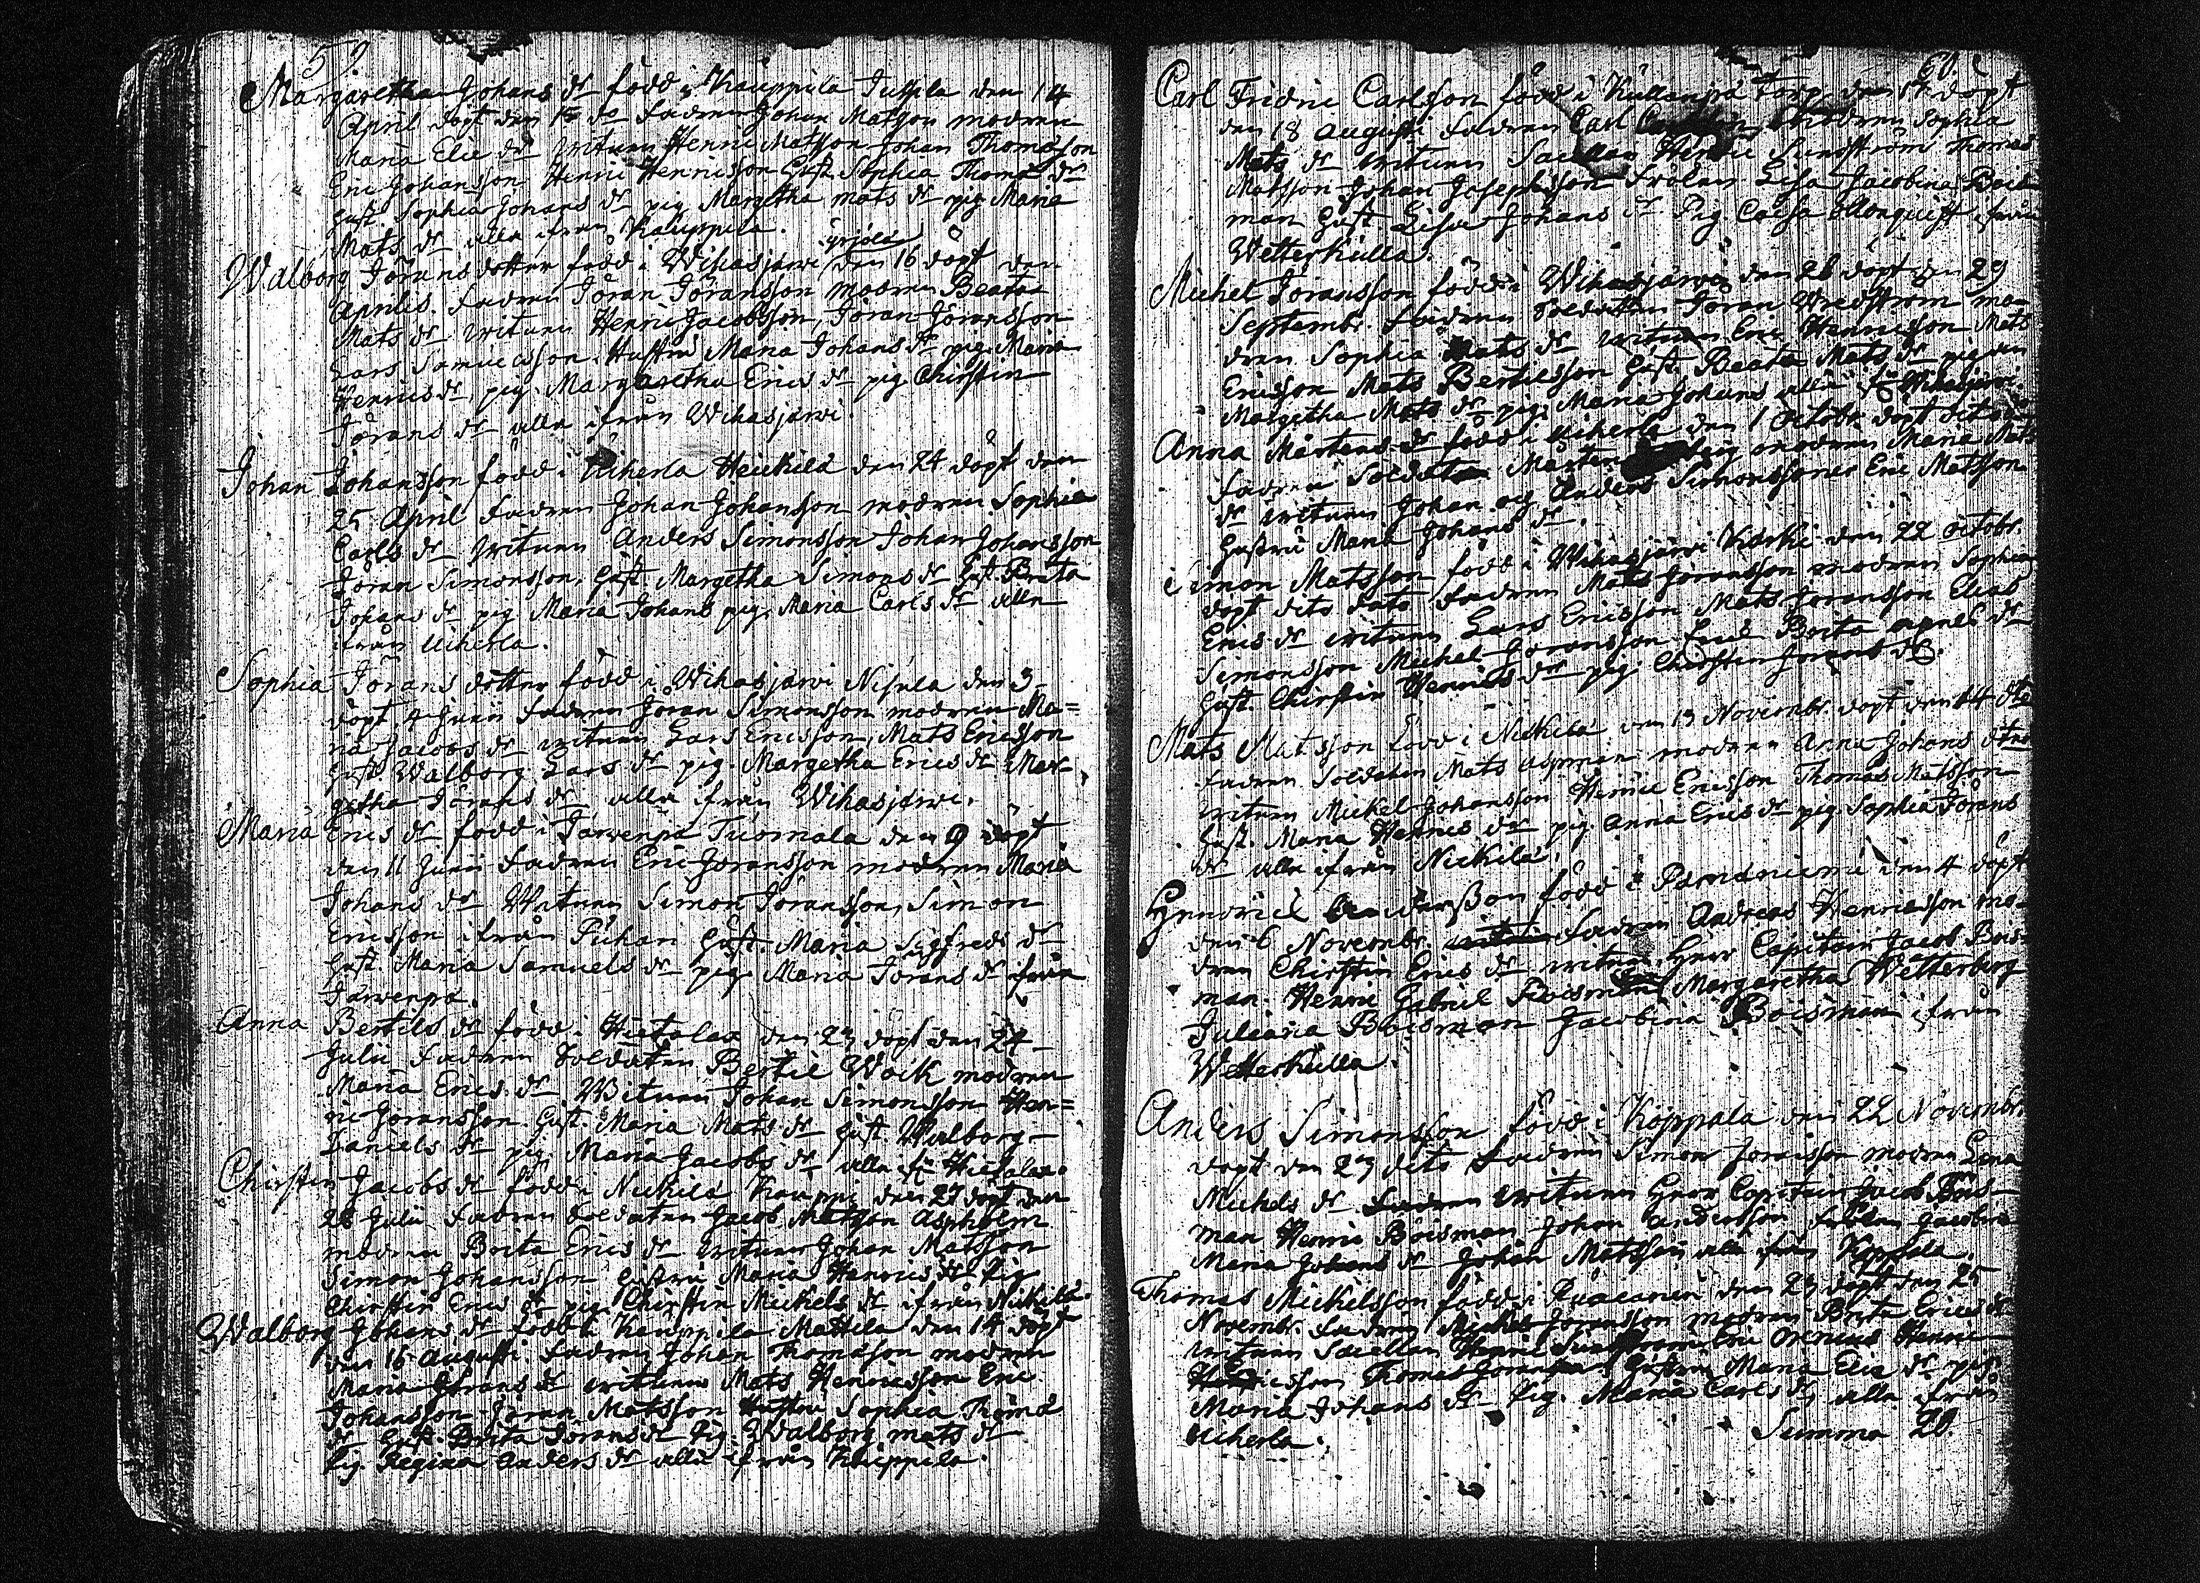 59.
Margaretha Johans dr född i Kauppila Jussila den 14
April döpt den 15 do fadren Johan Matsson modren
Maria Elie dr witnen Henric Matsson Johan Thomasson
Eric Johansson Henric Henricsson Hust. Sophia Thomæ dr
Hust. Sophia Johans dr pig. Margetha Mats dr pig Maria
Mats dr alla ifrån Kauppila.
yrjölä
Walborg Jörans dotter född i Wihasjärvi den 16 döpt den
Aprilis. fadren Jöran Jöransson modren Beata
Mats dr witnen Henric Jacobsson, Jöran Jöransson
Lars Samuelsson. Hustru Maria Johans dr pig. Maria
Henrics dr, pig. Margaretha Erics dr pig Chirstin
Jörans dr alla ifrån Wihasjärwi.
Johan Johansson född i Uiherla Heickilä den 24 döpt den
25 April fadren Johan Johansson modren Sophia
Carls dr witnen Anders Simonsson Johan Johansson
Jöran Simonsson, Hust. Margetha Simons dr Hust. Brita
Johans dr pig Maria Johans pig. Maria Carls dr alla
ifrån Uiherla.
Sophia Jörans dotter född i Wihasjärwi Nisula den 3
döpt 4 Junii fadren Jöran Simonsson modren Ma=
ria Jacobs dr witnen Lars Ericsson, Mats Ericsson
Hust Walborg Lars dr pig. Margetha Erics dr Mar-
getha Jörans dr alla ifrån Wihasjärwi.
Maria Erics dr född i Järwenpä Tuomala den 9 döpt
den 11 Junii fadren Eric Jöransson modren Maria
Johans dr Witnen Simon Jöransson, Simon
Ericsson ifrån Puhan Hust. Maria Sigfreds dr
Hust. Maria Samuels dr pig. Maria Jörans dr ifrån
Järwenpä.
Anna Bertils dr född i Hietalax den 23 döpt den 24
Julii fadren Soldaten Bertil Woik modren
Maria Erics dr Witnen Johan Simonsson Hen=
ric Jöransson. Hust. Maria Mats dr Hust. Walborg
Daniels dr pig. Maria Jacobs dr alla ifr Hietalax.
Chirstin Jacobs dr född i Nickilä Kauppi den 27 döpt den
28 Julii fadren Soldaten Jacob Matsson Aspholm
modren Brita Erics dr witnen Johan Matsson
Simon Johansson Hustru Maria Henrics dr Pig.
Chirstin Erics dr pig. Chirstin Mickels dr ifrån Nickilä.
Walborg Johans dr född i Kauppila Mattila den 14 döpt
den 16 Augusti. fadren Johan Thomasson modren
Maria Jörans dr witnen Mats Henricsson Eric
Johansson Jöran Matsson Hustru Sophia Thomæ
dr Hust. Brita Jörans dr Pig. Walborg Mats dr
Pig. Regina Anders dr alla ifrån Kauppila.
60.
Carl Fridric Carlsson född i Kullanpä Torp den 17 döpt
den 18 Augusti fadren Carl modren Sophia
Mats dr witnen Henric Sundström Thomas
Matsson Johan Josephsson Frölen Lisa Jacobina Bois
man Hust. Lisa Johans dr Pig. Caisa ifrån
Wetterkulla.
Michel Jöransson född i Wihasjärwi den 28 döpt den 29
Septembr. fadren Soldaten Jöran Wredström mo-
dren Sophia Mats dr witnen Eric Henricsson Mats
Ericsson Mats Bertilsson Hust. Beata Mats dr pigan
Margetha Mats dr pig. Maria Johans alla ifr Wihasjärwi.
Anna Mårtens dr född i Uiherla den 1 Octobr döpt
fadren Soldaten Mårten modren Maria Mats
dr witnen Johan och Anders Simonssoner Eric Matsson
Hustru Maria Johans dr.
Simon Matsson född i Wihasjärwi Koski den 22 Octobr.
döpt dito dato fadren Mats Jöransson modren Sophia
Erics dr witnen Lars Ericsson Mats Jöransson Elias
Simonsson Michel Jöransson Brita dr
Hust. Chirstin Henrics dr pig. Chirstin Jörans dr.
Mats Matsson född i Nickilä den 13 Novembr. döpt den 14 dito
fadren Soldaten Mats Aspman modren Anna Johans dr
witnen Mickel Johansson Henric Ericsson Thomas Matsson
Hust. Maria Henrics dr pig. Anna Erics dr pig. Sophia Jörans
dr alla ifrån Nickilä.
Hendrick född i den 4 döpt
den 6 Novembr. fadren Andreas Henricsson mo-
dren Chirstin Erics dr witnen Herr Capitain Jacob Bois-
man. Henric Gabriel Boisman Margaretha Wetterberg
Juliana Boisman Jacobina Boisman ifrån
Wetterkulla.
Anders Simonsson född i Koppala den 22 Novembr.
döpt den 23 dito fadren Simon Jöransson modren Lena
Michels dr witnen Herr Capitain Jacob Bois-
man Henric Boisman Johan Andersson frölen Jacobina
Maria Johans dr Johan Matsson alla ifrån Koppala.
Thomas Mickelsson född i den 23 döpt den 25
Novembr. fadren Michel Jöransson modren Brita Erics dr
witnen Henric Eric Henric
Henricsson Thomas Jöransson Hustru Maria Elie dr pig.
Maria Johans dr Pig. Maria Carls dr alla ifrån
Uiherla.
Summa 20.